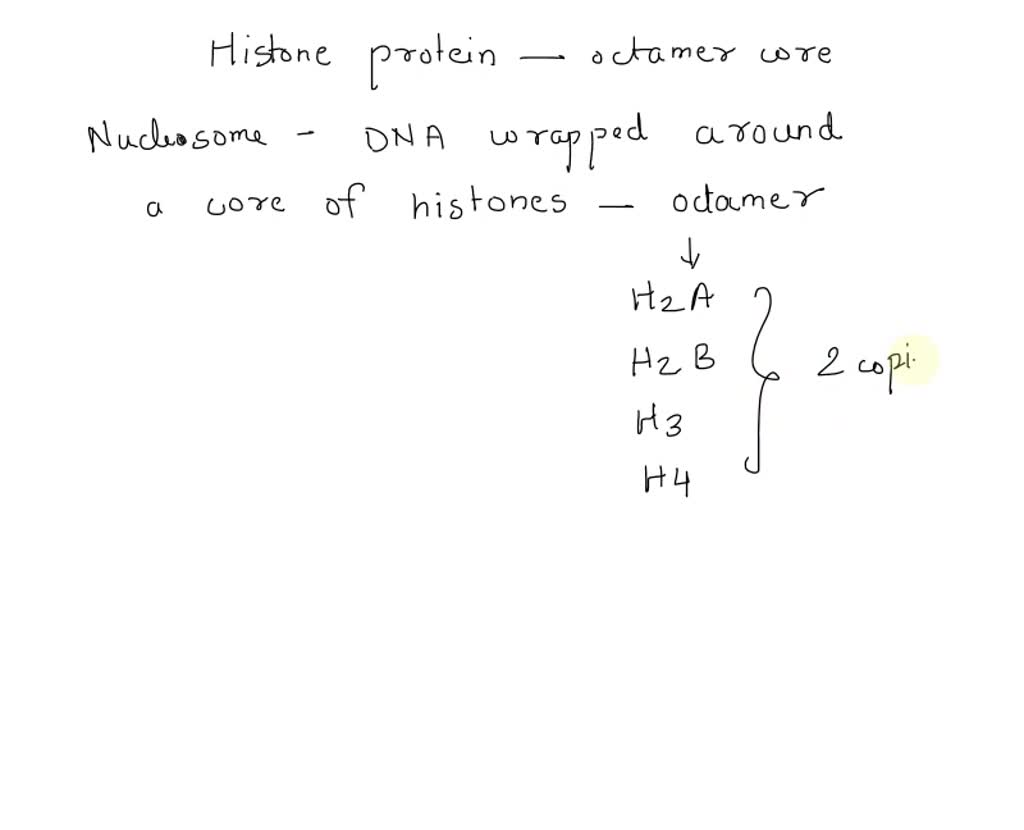 Histone protein — octamer core
Nucleosome - DNA wrapped around
a core of histones — octamer
↓
H2A
H2B
2 copi
H3
H4